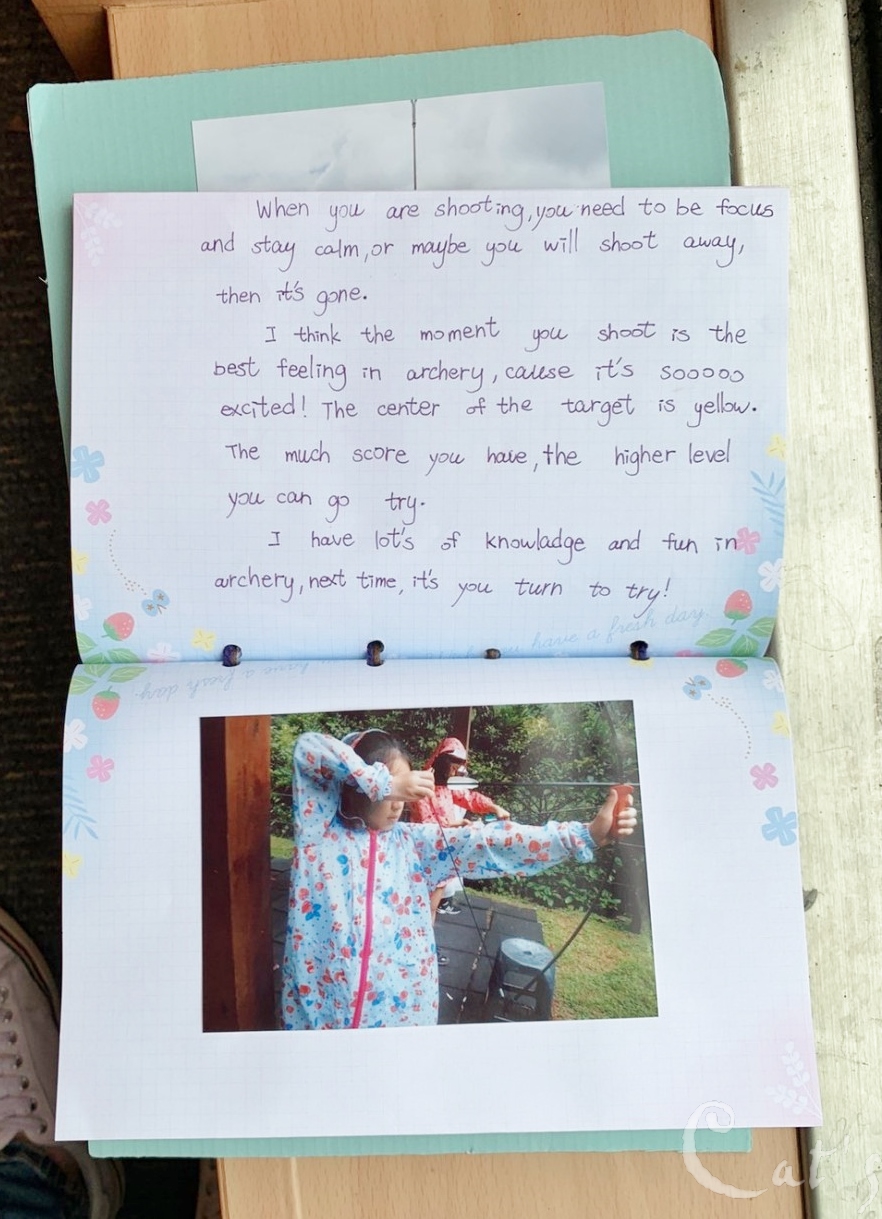 When you are shooting, you need to be focus
and stay calm, or maybe you will shoot away,
then it's gone.
I think the moment you shoot is the
best feeling in archery, cause it's sooooo
excited! The center of the target is yellow.
The much score you have, the higher level
you can go try.
I have lot's of knowladge and fun in
archery, next time, it's you turn to try!
have a fresh day
have a fresh day.
Cat's